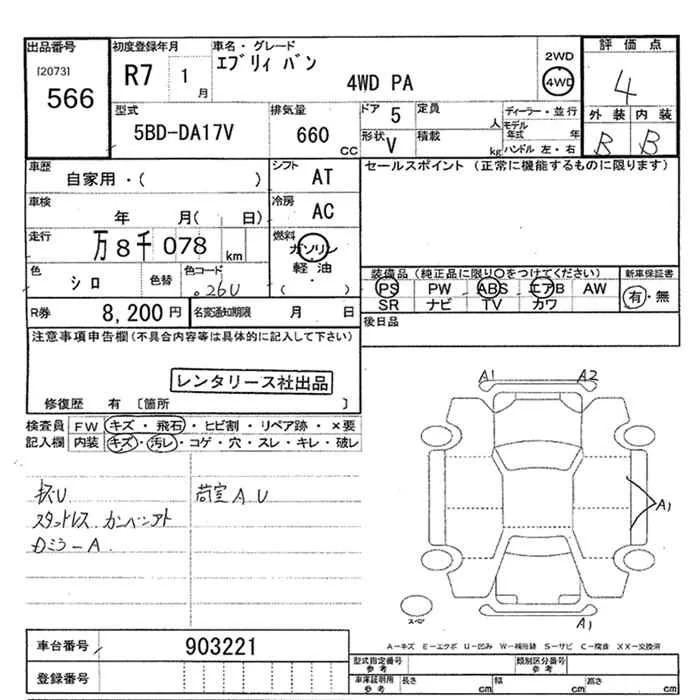 出品番号 初度登録年月 車名・グレード 評価点
[2073] 566
R7 1月 エブリィ バン 4WD PA
2WD
4WD
4
型式 5BD-DA17V
排気量 660 CC
ドア 5 定員 人
ディーラー・並行
外装 内装
形状 V 積載 kg
モデル年式 年
ハンドル 左・右
B B
車歴 自家用・( )
シフト AT
セールスポイント (正常に機能するものに限ります)
車検 年 月( 日)
冷房 AC
走行 万 8千 078 km
燃料 ガソリン
軽油
( )
色 シロ 色替 色コード 26U
装備品 (純正品に限り○をつけてください) 新車保証書
PS PW ABS エアB AW 有・無
SR ナビ TV カワ
R券 8,200円 名変通知期限 月 日
後日品
注意事項申告欄(不具合内容等は具体的に記入して下さい)
レンタリース社出品
修復歴 有 〔箇所 〕
A1 A2
検査員 FW キズ・飛石・ヒビ割・リペア跡・×要
記入欄 内装 キズ・汚レ・コゲ・穴・スレ・キレ・破レ
荷室AU
スタットレス
Dミラ-A
A1
スペア
A1
車台番号 903221
A-キズ E-エクボ U-凹み W-補修跡 S-サビ C-腐食 XX-交換済
型式指定番号 参考 類別区分番号 参考
登録番号
車庫証明用 参考 長さ cm 幅 cm 高さ cm